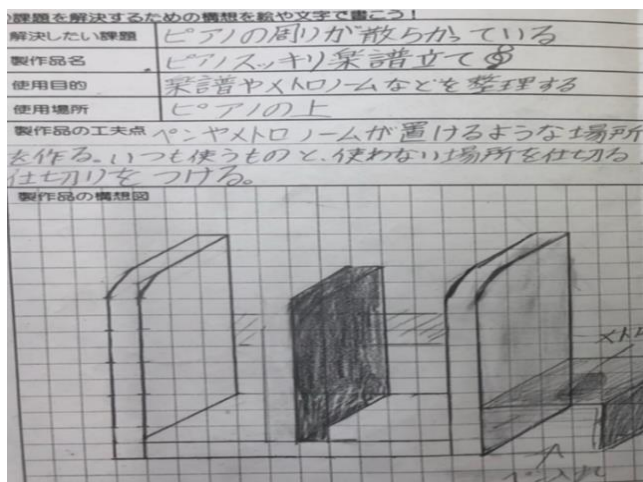 課題を解決するための構想を絵や文字で書こう！
解決したい課題 ピアノの周りが散らかっている
製作品名 ピアノスッキリ楽譜立て
使用目的 楽譜やメトロノームなどを整理する
使用場所 ピアノの上
製作品の工夫点 ペンやメトロノームが置けるような場所
を作る。いつも使うものと、使わない場所を仕切る
仕切りをつける。
製作品の構想図
メトロ
ペン入れ